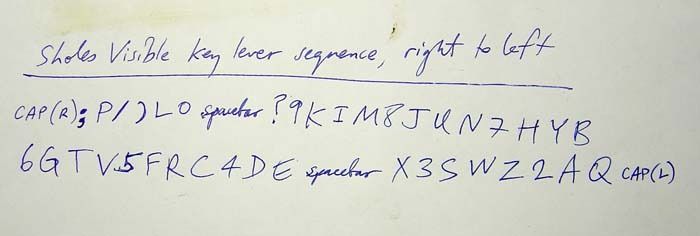 Sholes Visible key lever sequence, right to left
CAP(R); P/)LO spacebar ?9KIM8JUN7HYB
6GTV5FRC4DE spacebar X3SWZ2AQ CAP(L)